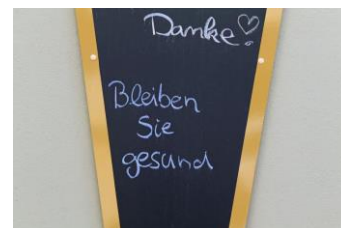 Danke!
Bleiben
Sie
gesund